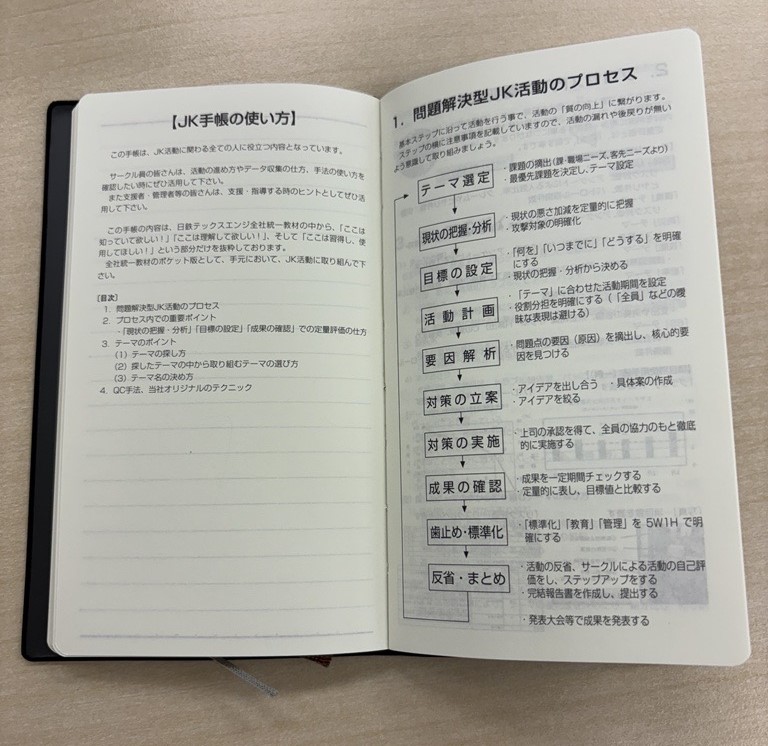 【JK手帳の使い方】
この手帳は、JK活動に関わる全ての人に役立つ内容となっています。
サークル員の皆さんは、活動の進め方やデータ収集の仕方、手法の使い方を
確認したい時にぜひ活用して下さい。
また支援者・管理者等の皆さんは、支援・指導する時のヒントとしてぜひ活
用して下さい。
この手帳の内容は、日鉄テックスエンジ全社統一教材の中から、「ここは
知っていて欲しい！」「ここは理解して欲しい！」、そして「ここは習得し、使
用してほしい！」という部分だけを抜粋しております。
全社統一教材のポケット版として、手元において、JK活動に取り組んで下
さい。
〔目次〕
1. 問題解決型JK活動のプロセス
2. プロセス内での重要ポイント
-「現状の把握・分析」「目標の設定」「成果の確認」での定量評価の仕方
3. テーマのポイント
（1）テーマの探し方
（2）探したテーマの中から取り組むテーマの選び方
（3）テーマ名の決め方
4. QC手法、当社オリジナルのテクニック
1. 問題解決型JK活動のプロセス
基本ステップに沿って活動を行う事で、活動の「質の向上」に繋がります。
ステップの横に注意事項を記載していますので、活動の漏れや後戻りが無い
よう意識して取り組みましょう。
テーマ選定
・課題の摘出（課・職場ニーズ、客先ニーズより）
・最優先課題を決定し、テーマ設定
現状の把握・分析
・現状の悪さ加減を定量的に把握
・攻撃対象の明確化
目標の設定
・「何を」「いつまでに」「どうする」を明確
にする
・現状の把握・分析から決める
活動計画
・「テーマ」に合わせた活動期間を設定
・役割分担を明確にする（「全員」などの曖
昧な表現は避ける）
要因解析
・問題点の要因（原因）を摘出し、核心的要
因を見つける
対策の立案
・アイデアを出し合う ・具体案の作成
・アイデアを絞る
対策の実施
・上司の承認を得て、全員の協力のもと徹底
的に実施する
成果の確認
・成果を一定期間チェックする
・定量的に表し、目標値と比較する
歯止め・標準化
・「標準化」「教育」「管理」を 5W1H で明
確にする
反省・まとめ
・活動の反省、サークルによる活動の自己評
価をし、ステップアップをする
・完結報告書を作成し、提出する
・発表大会等で成果を発表する